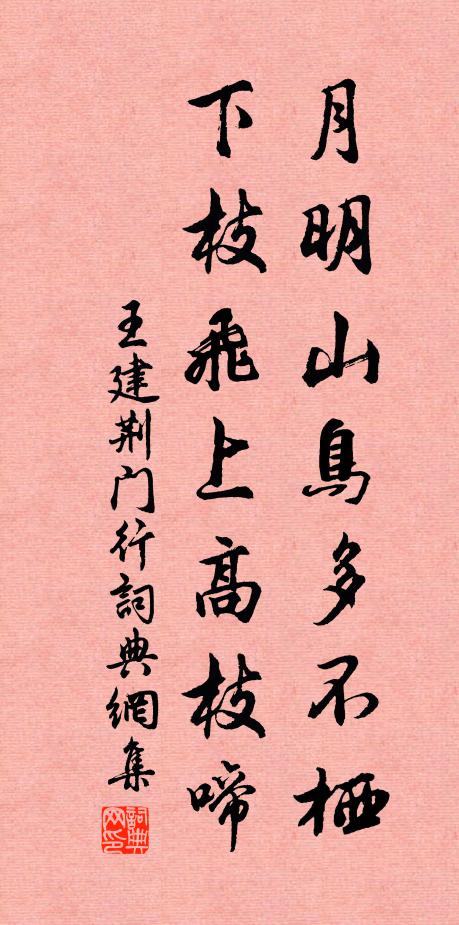 月明山鳥多不栖
下枝飛上高枝啼
王建荆门行詞典網集
詞典网印